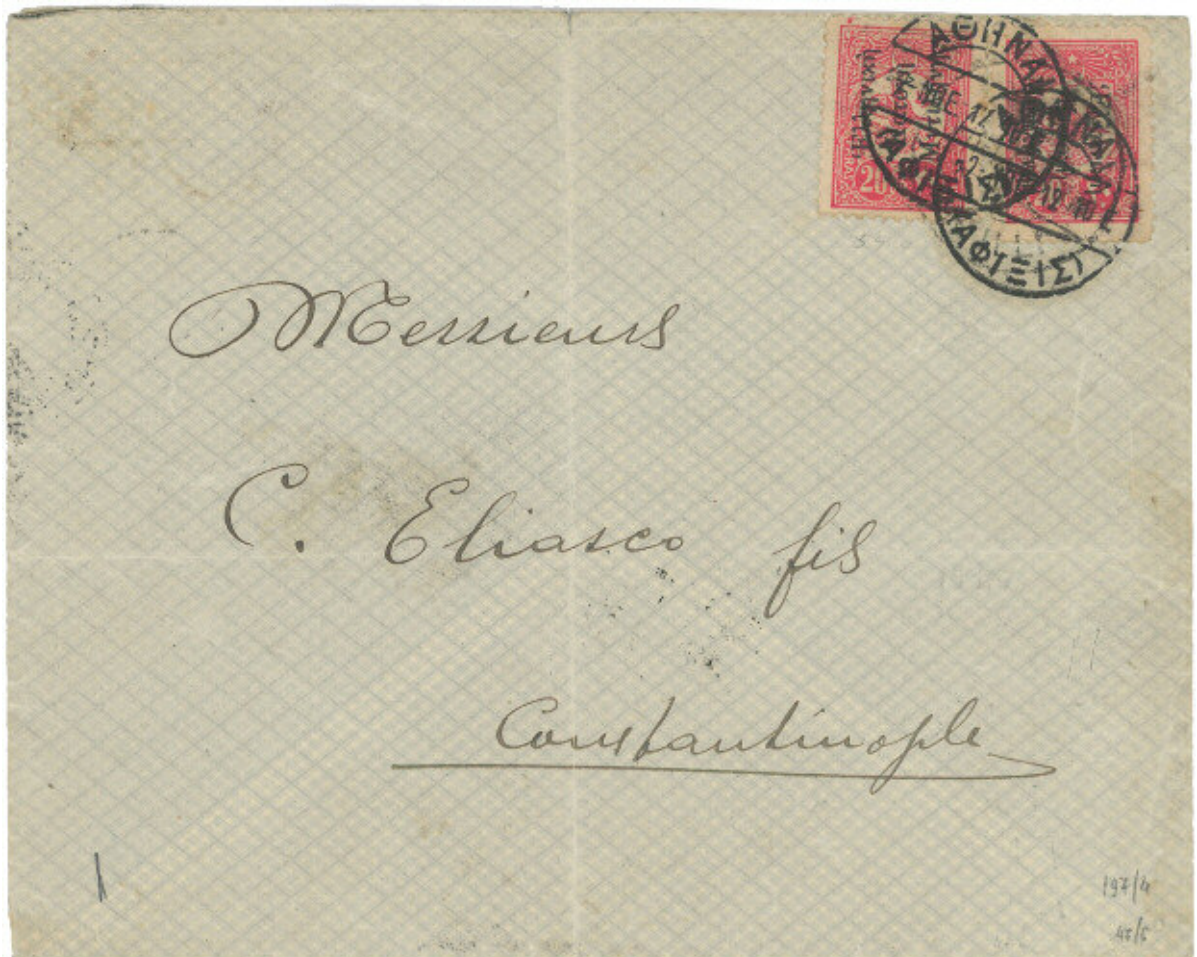 ΑΘΗΝΑΙ
20
ΑΦΙΞΙΣ
Messieurs
C. Eliasco fils
Constantinople
197/4
47/5